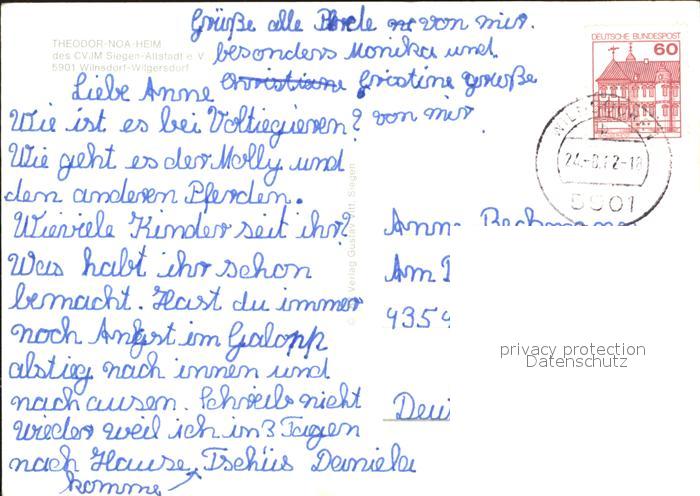 Grüße alle Pferde von mir.
besonders Monika und
Christiane Cristine grüße
von mir
THEODOR-NOA-HEIM
des CVJM Siegen-Altstadt e.V.
5901 Wilnsdorf-Wilgersdorf
Liebe Anne
Wie ist es bei Voltiegieren?
Wie geht es der Molly und
den anderen Pferden.
Wieviele Kinder seit ihr?
Was habt ihr schon
bemacht. Hast du immer
noch Angst im Galopp
abstieg nach innen und
nach ausen. Schreib nicht
wieder weil ich in 3 Tagen
nach Hause Tschüs Daniela
komme
Verlag Gustav Witt, Siegen
DEUTSCHE BUNDESPOST
60
5901
Am
4354
privacy protection
Datenschutz